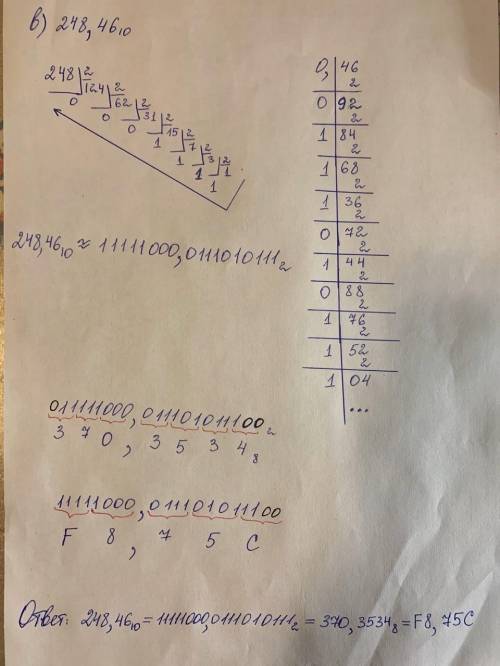 в) 248,46₁₀
248 2
124 2
0 62 2
0 31 2
0 15 2
1 7 2
1 3 2
1 1
1
0, 46
2
0 92
2
1 84
2
1 68
2
1 36
2
0 72
2
1 44
2
0 88
2
1 76
2
1 52
2
1 04
...
248,46₁₀ ≈ 11111000,0111010111₂
011111000,011101011100₂
3 7 0, 3 5 3 4₈
11111000,011101011100
F 8, 7 5 C
Ответ: 248,46₁₀ = 11111000,0111010111₂ = 370,3534₈ = F8,75C